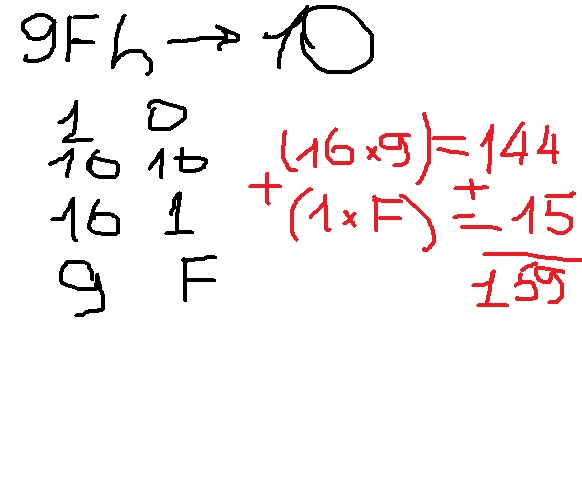 9Fh → 10
1 0
16 16
16 1
9 F
(16 x 9) = 144
+ +
(1 x F) = 15
159